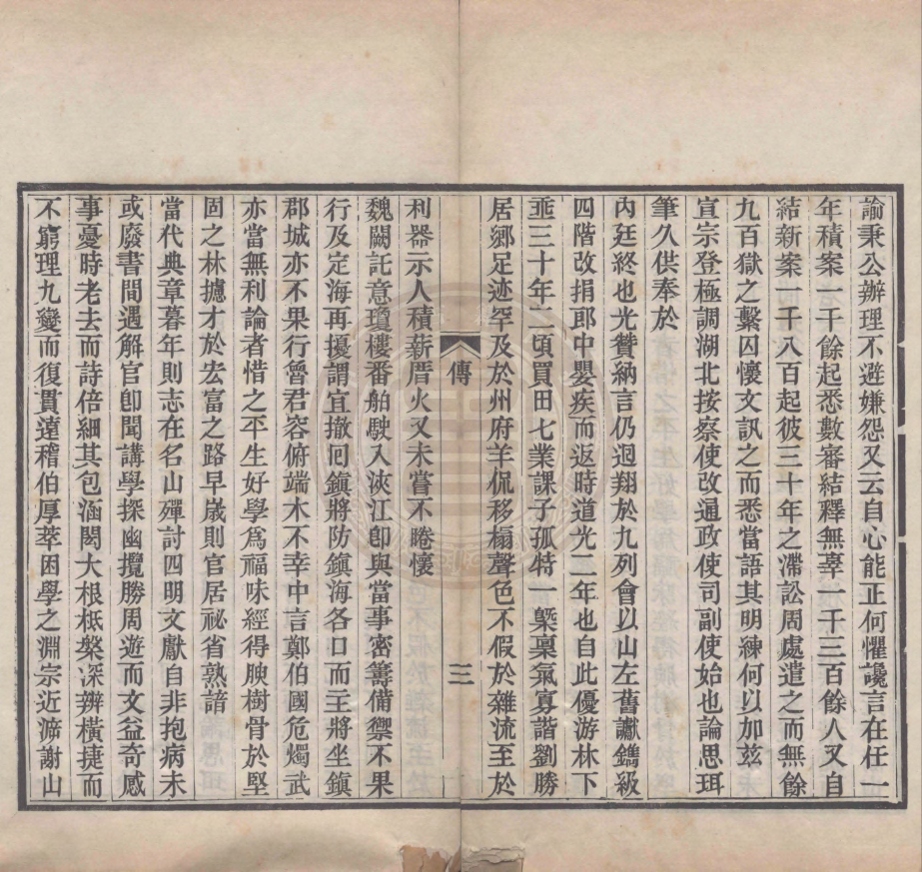 諭秉公辦理不避嫌怨又云自心能正何懼讒言在任一
年積案一千餘起悉數審結釋無辜一千三百餘人又自
結新案一千八百起彼三十年之滯訟周處遣之而無餘
九百獄之繫囚懷文訊之而悉當語其明練何以加玆
宣宗登極調湖北按察使改通政使司副使始也論思珥
筆久供奉於
內廷終也光贊納言仍迴翔於九列會以山左舊讞鐫級
四階改捐郎中嬰疾而返時道光二年也自此優游林下
垂三十年二頃買田七業課子孤特一槩稟氣寡諧劉勝
居鄉足迹罕及於州府羊侃移榻聲色不假於雜流至於
傳
三
利器示人積薪厝火又未嘗不睠懷
魏闕託意瓊樓番舶駛入浹江卽與當事密籌備禦不果
行及定海再擾謂宜撤囘鎭將防鎭海各口而主將坐鎭
郡城亦不果行曾君容俯端木不幸中言鄭伯國危燭武
亦當無利論者惜之平生好學爲福味經得腴樹骨於堅
固之林攄才於宏富之路早歲則官居祕省熟諳
當代典章暮年則志在名山殫討四明文獻自非抱病未
或廢書間遇解官卽聞講學探幽攬勝周遊而文益奇感
事憂時老去而詩倍細其包涵閎大根柢槃深辨橫捷而
不窮理九變而復貫遠稽伯厚萃困學之淵宗近溯謝山